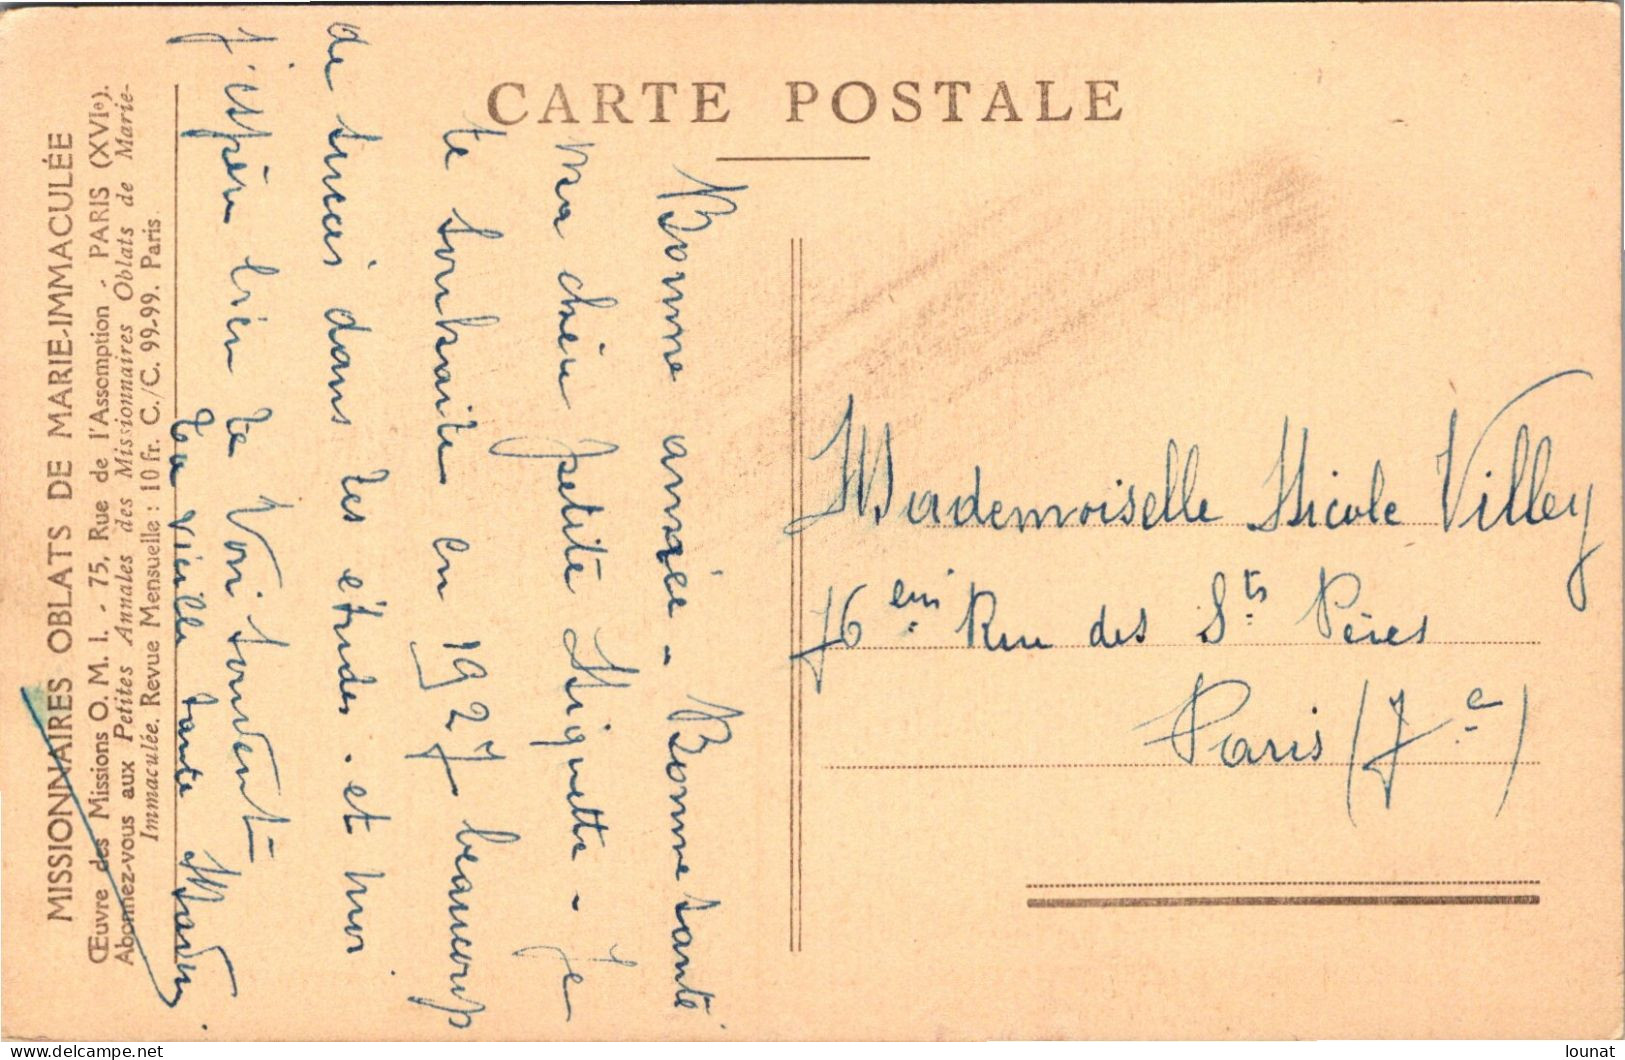 CARTE POSTALE
MISSIONNAIRES OBLATS DE MARIE-IMMACULÉE
Œuvre des Missions O. M. I. - 75, Rue de l'Assomption - PARIS (XVIᵉ).
Abonnez-vous aux Petites Annales des Missionnaires Oblats de Marie-
Immaculée. Revue Mensuelle : 10 fr. C./C. 99-99. Paris.
Bonne année - Bonne santé
ma chère petite Niquette - Je
te souhaite en 1927 beaucoup
de succès dans tes études. et moi
j'espère bien te voir souvent -
ta vieille tante
Mademoiselle Nicole Villey
76 Rue des Sts Pères
Paris (7e)
delcampe.net
lounat